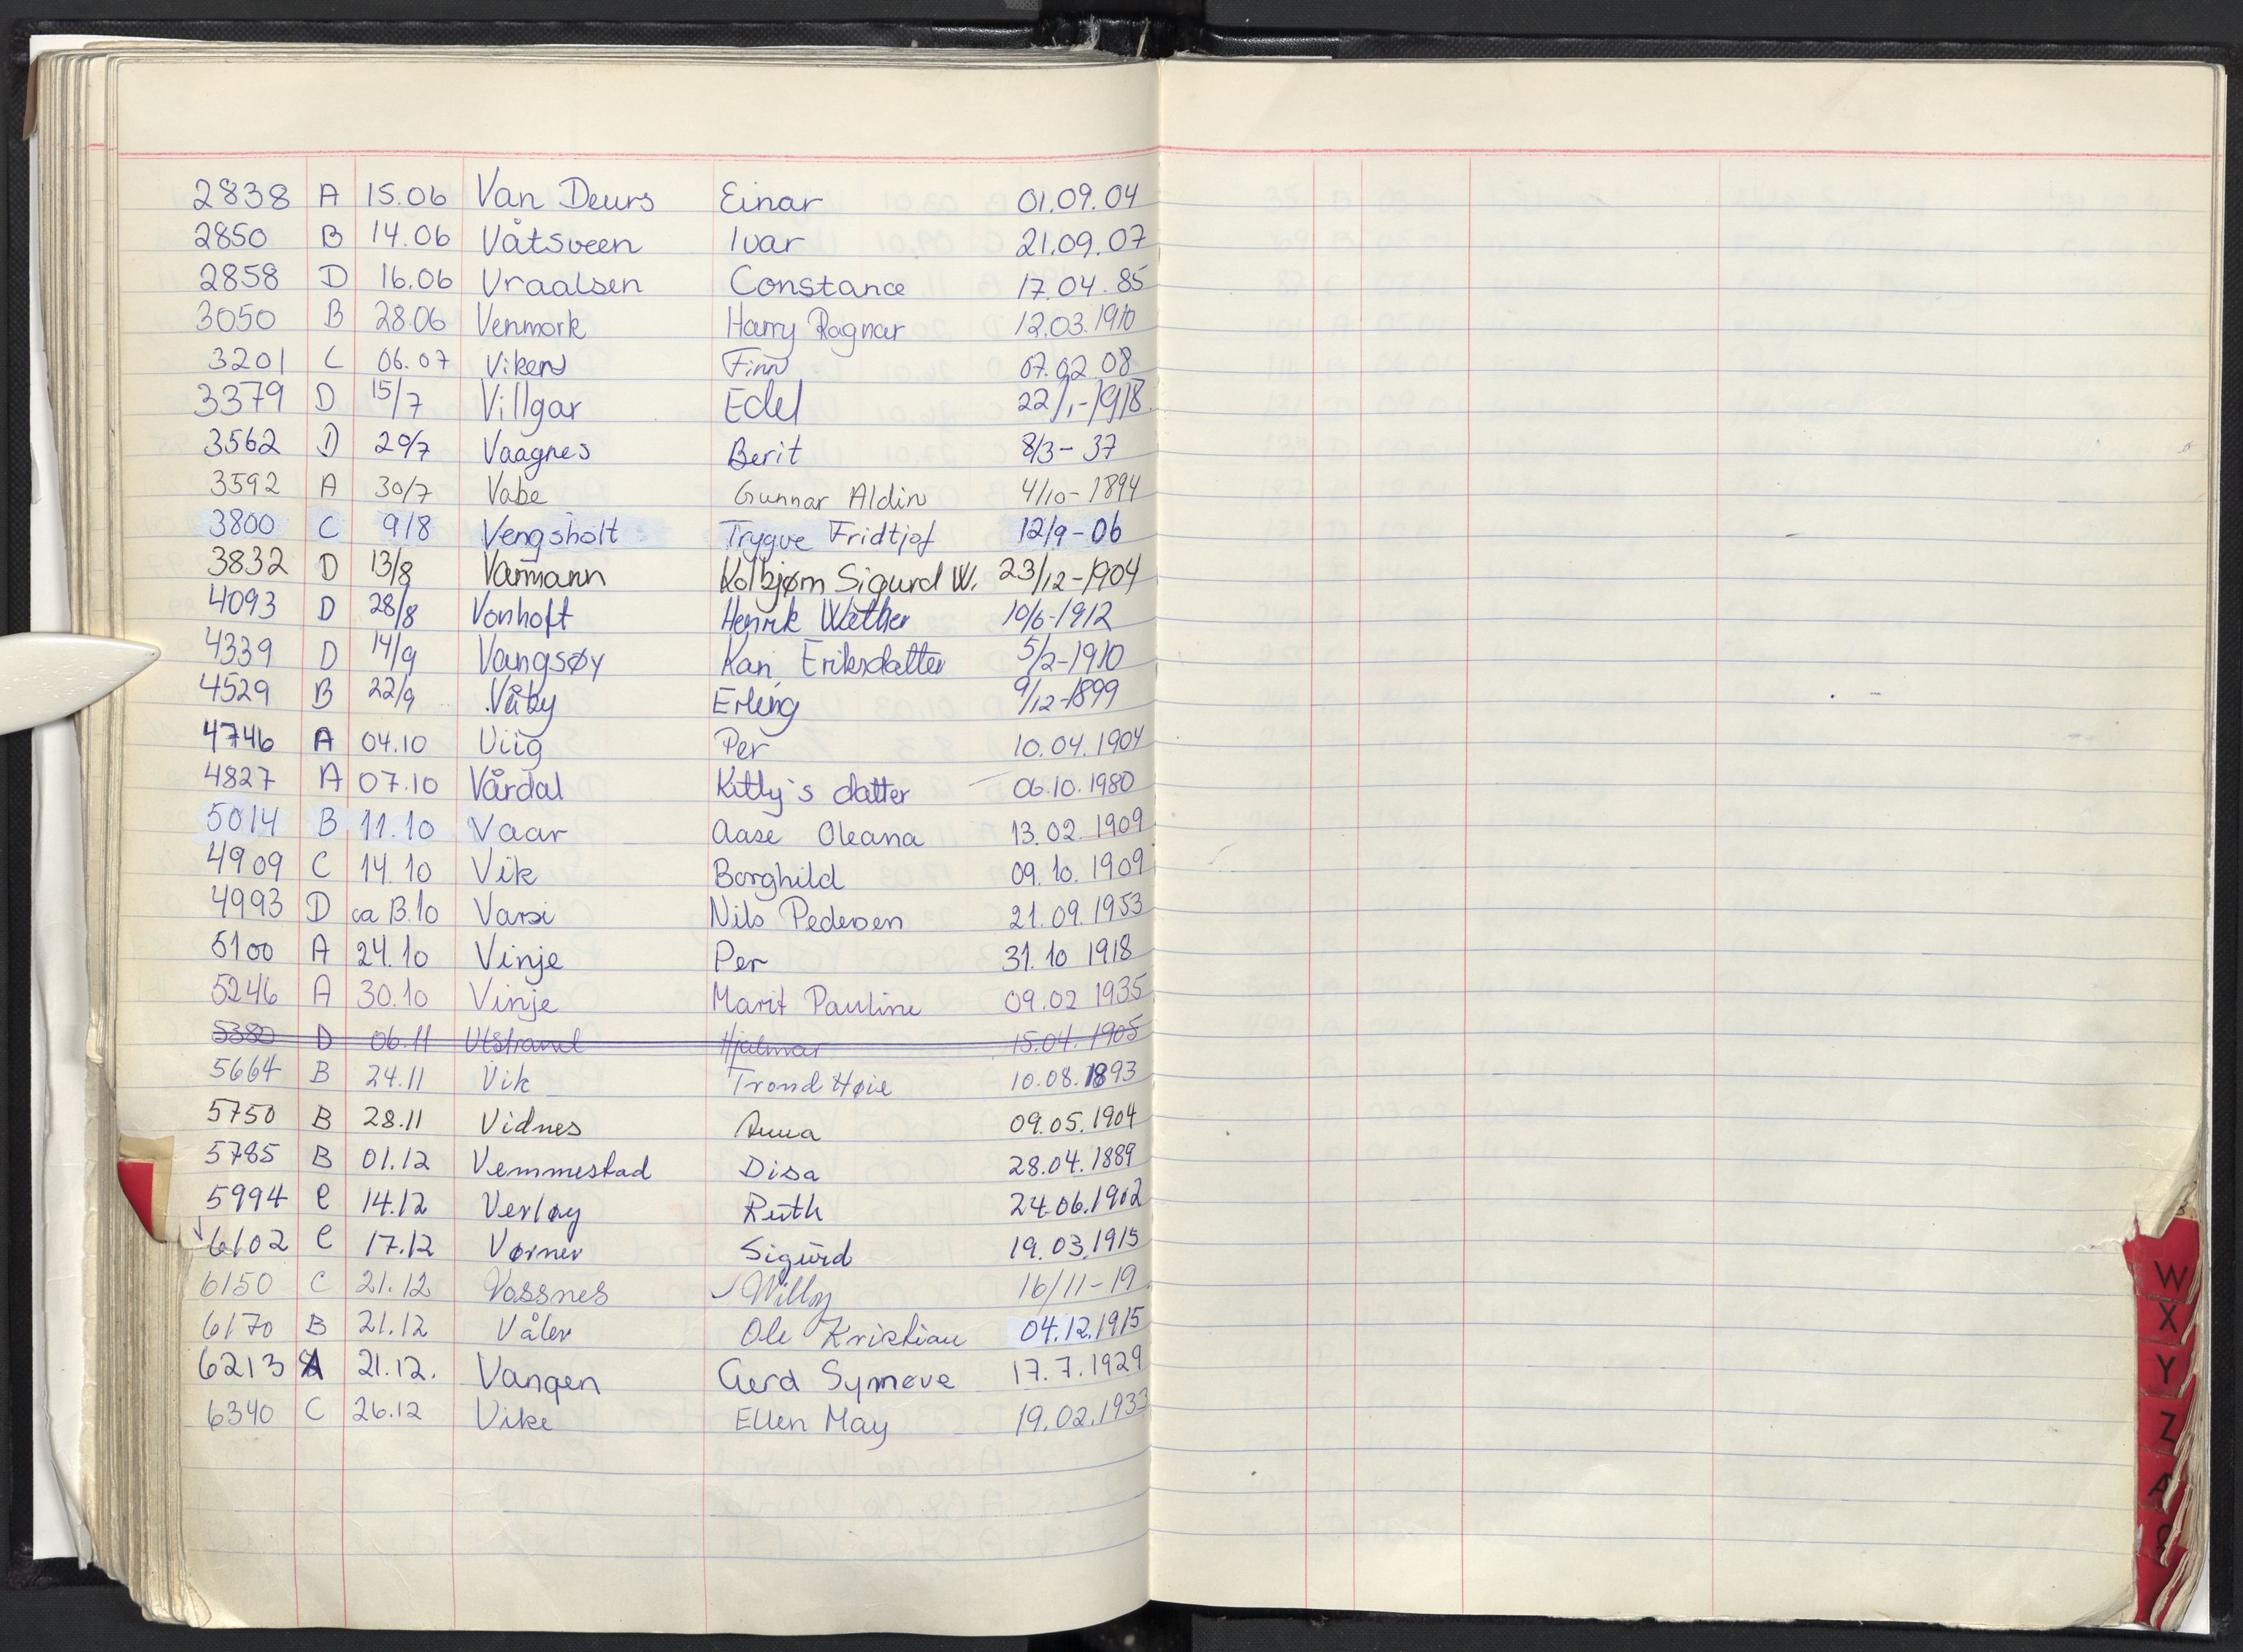 2838 A 15.06 Van Deurs Einar 01.09.04
2850 B 14.06 Våtsveen Ivar 21.09.07
2858 D 16.06 Vraalsen Constance 17.04.85
3050 B 28.06 Venmork Harry Ragnar 12.03.1910
3201 C 06.07 Viken Finn 07.02.08
3379 D 15/7 Villgar Edel 22/1-1918
3562 D 29/7 Vaagnes Berit 8/3-37
3592 A 30/7 Vabe Gunnar Aldin 4/10-1894
3800 C 9/8 Vengsholt Trygve Fridtjof 12/9-06
3832 D 13/8 Varmann Kolbjørn Sigurd W. 23/12-1904
4093 D 28/8 Vonhoft Henrik Walther 10/6-1912
4339 D 14/9 Vangsøy Kari Eriksdatter 5/2-1910
4529 B 22/9 Våby Erling 9/12-1899
4746 A 04.10 Viig Per 10.04.1904
4827 A 07.10 Vårdal Kitty's datter 06.10.1980
5014 B 11.10 Vaar Aase Oleana 13.02.1909
4909 C 14.10 Vik Borghild 09.10.1909
4993 D ca 13.10 Varsi Nils Pedersen 21.09.1953
5100 A 24.10 Vinje Per 31.10 1918
5246 A 30.10 Vinje Marit Pauline 09.02 1935
5380 D 06.11 Utstrand Hjalmar 15.04.1905
5664 B 24.11 Vik Trond Høie 10.08.1893
5750 B 28.11 Vidnes Anna 09.05.1904
5785 B 01.12 Vemmestad Disa 28.04.1889
5994 C 14.12 Verløy Ruth 24.06.1902
6102 C 17.12 Vørner Sigurd 19.03.1915
6150 C 21.12 Vassnes Willy 16/11-19
6170 B 21.12 Våler Ole Kristian 04.12.1915
6213 A 21.12. Vangen Gerd Synnøve 17.7.1929
6340 C 26.12 Vike Ellen May 19.02.1933
W
X
Y
Z